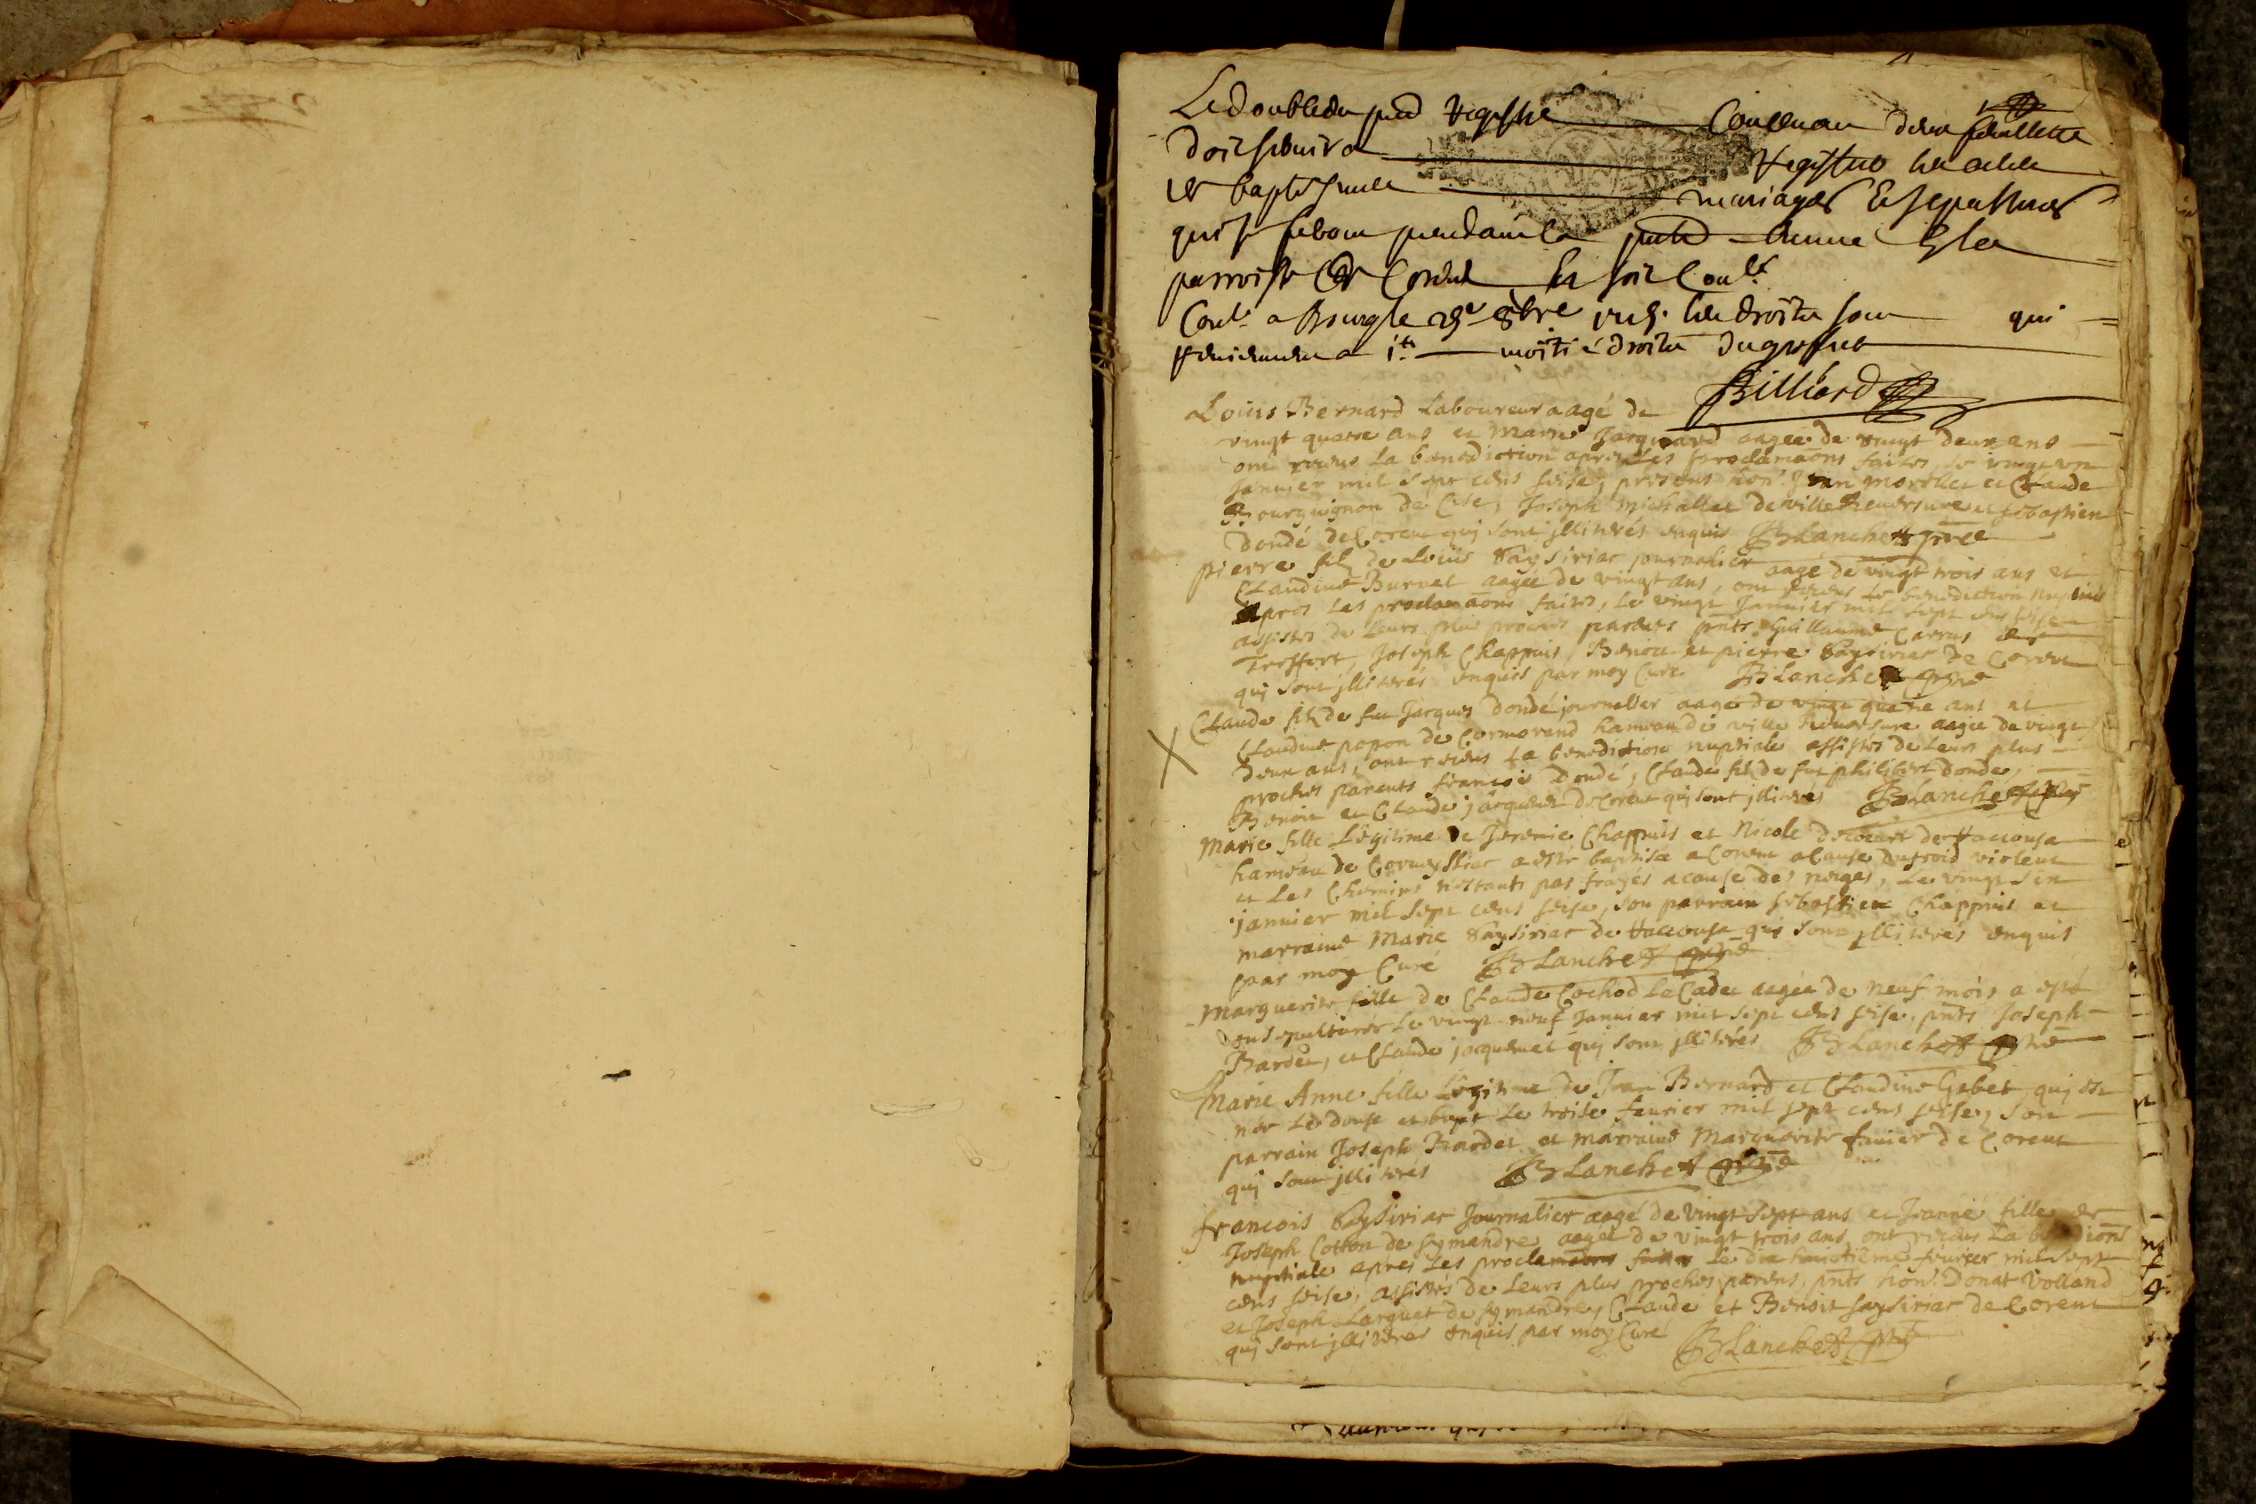 Le double du pnt Registre Contenant deux feuillets
doit servir a Registrer les actes
de baptesmes mariages & sepultures
qui se feront pendant la pnte annee En la
parroisse de Corent
Cont. a Bourg le 8bre les droits sont qui
moitié droits du greffier
Billiard
Louis Bernard Laboureur aagé de
vingt quatre ans et Marie Jacquand aagée de vingt deux ans
ont receus La benediction apres Les proclamaons faites, le vingt un
Janvier mil sept cens seise, presens hon. Jean morellet et Claude
Bourguignon de Cise, Joseph michallet de ville Reuersure et sebastien
Dondé de Corent qui sont jlliterés enquis Blanchet Curé
pierre filz de Louis Saysiriac journalier aagé de vingt trois ans et
Claudine Burnet aagée de vingt ans, ont receus la benediction nuptiale
apres Les proclamaons faites, Le vingt Janvier mil sept cens seise
assistes de Leurs plus proches parens pnts Guillaume Carrus de
Treffort, Joseph Chappuis, Benoit et pierre Saysiriac de Corent
qui sont jlliterés enquis par moy Curé Blanchet Curé
Claude filz de feu Jacques Dondé journalier aagé de vingt quatre ans et
Claudine papon de Cormorand hameau de ville Reuersure aagée de vingt
deux ans, ont receus La benediction nuptiale assistes de Leurs plus
proches parents francois Dondé, Claude filz de feu philibert Dondé,
Benoit et Claude jacquemet de Corent qui sont jlliterés Blanchet Curé
Marie fille Legitime de Jeremie Chappuis et Nicole de Haccousa
hameau de a esté baptisée a Corent a Cause du froid violent
et Les Chemins n'estants pas frayés a cause des neiges, Le vingt six
janvier mil sept cens seise, son parrain sebastien Chappuis et
marraine Marie Saysiriac de Haccousa qui sont jlliterés enquis
par moy Curé Blanchet Curé
Marguerite fille de Claude Cochod Le Cadet aagée de neuf mois a esté
ensepulturée Le vingt-neuf Janvier mil sept cens seise, pnts Joseph
Bardet, et Claude jacquemet qui sont jlliterés Blanchet Curé
Marie Anne fille Legitime de Jean Bernard et Claudine Gabet, qui est
née Le douse et bapt Le treise feurier mil sept cens seise, son
parrain Joseph Bardet et marraine Marguerite fauier de Corent
qui sont jlliterés Blanchet Curé
francois Saysiriac Journalier aagé de vingt sept ans et Jeanne fille de
Joseph Cotton de symandre aagée de vingt trois ans, ont receus La benedion
nuptiale apres Les proclamaons faites Le dix huictiéme féurier mil sept
cens seise, assistés de Leurs plus proches parens, pnts hon. Donat Volland
et Joseph Larguet de symandre, Claude et Benoit saysiriac de Corent
qui sont jlliterés enquis par moy Curé Blanchet Curé